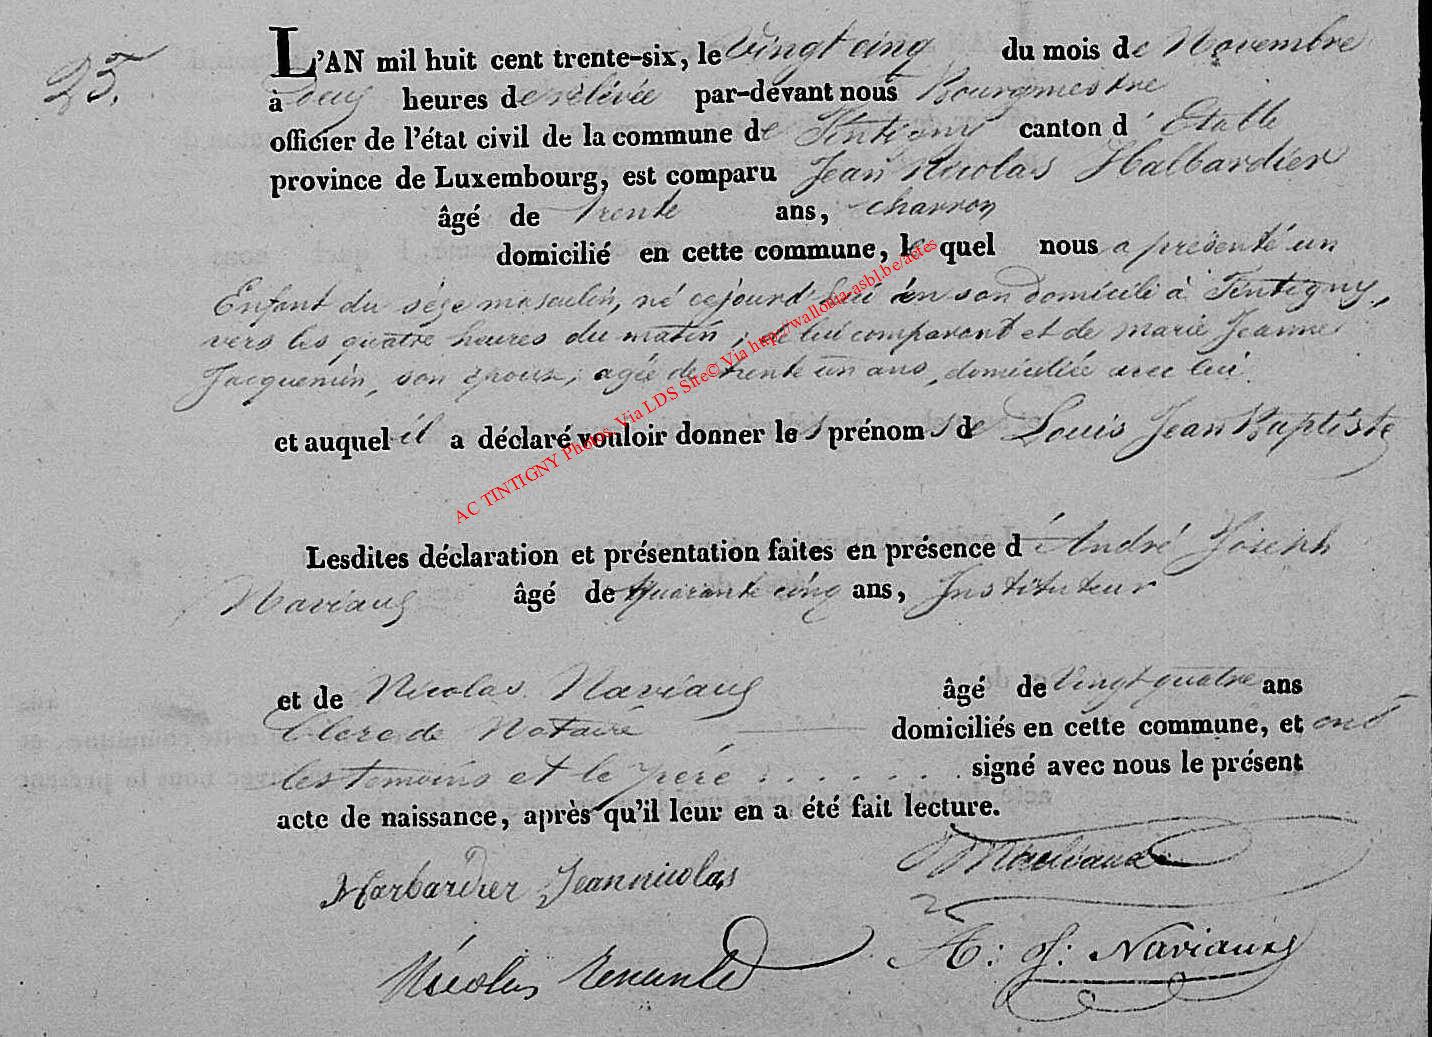 25.
L'AN mil huit cent trente-six, le Vingt cinq du mois de Novembre
à deux heures de rélévée par-devant nous Bourgmestre
officier de l'état civil de la commune de Tintigny canton d' Etalle
province de Luxembourg, est comparu Jean Nicolas Halbardier
âgé de trente ans, charron
domicilié en cette commune, le quel nous a présenté un
Enfant du séxe masculin, né cejourd'hui en son domicile à Tintigny,
vers les quatre heures du matin, de lui comparant et de marie Jeanne
Jacquemin, son épouse, agée de trente un ans, domiciliée avec lui.
et auquel il a déclaré vouloir donner les prénoms de Louis Jean Baptiste
AC TINTIGNY Photos Via LDS Site© Via http://wallonia-asbl.be/actes
Lesdites déclaration et présentation faites en présence d'André Joseph
Naviaux âgé de quarante cinq ans, Instituteur
et de Nicolas Naviaux âgé de Vingt quatre ans
Clerc de Notaire domiciliés en cette commune, et ont
les temoins et le père . . . . . . . signé avec nous le présent
acte de naissance, après qu'il leur en a été fait lecture.
Harbardier Jeannicolas
A: J: Naviaux
Nicolas